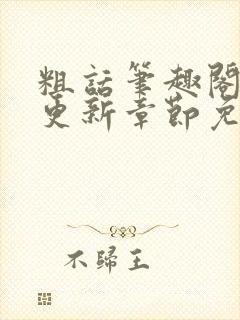 粗話筆趣閣
更新章節免
不歸王